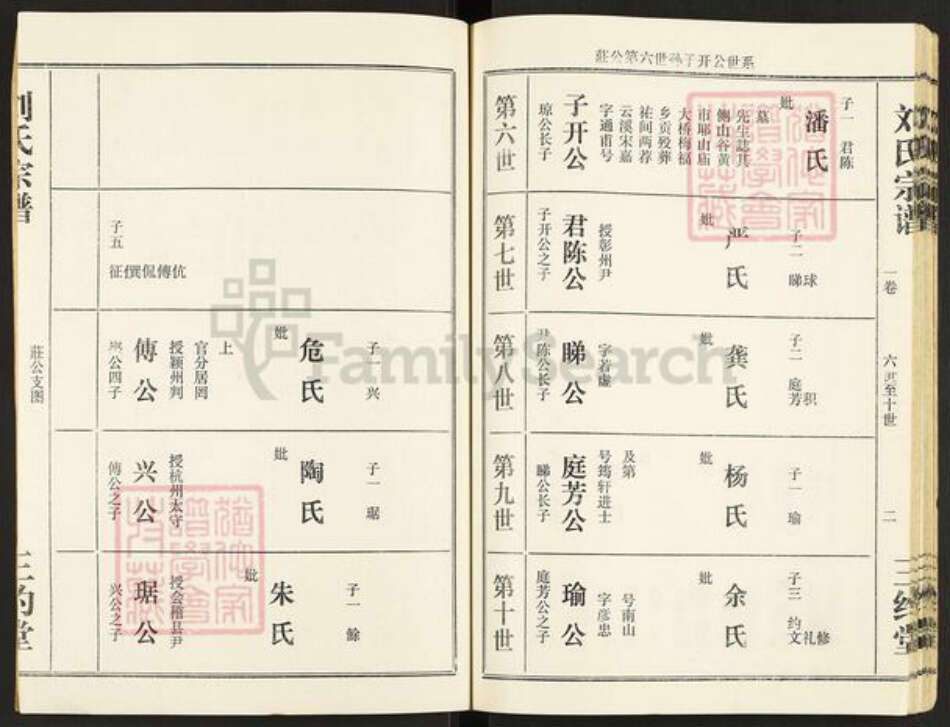 系世公开子孙世六第公莊
刘氏宗谱
一卷
六世至十世
二
三约堂
第六世
子开公
琼公长子
字通甫号
云溪宋嘉
祐间两荐
乡贡殁葬
大桥梅福
市耶山庙
侧山谷黄
先生誌其
墓
妣
潘氏
子一 君陈
第七世
君陈公
子开公之子
授彰州尹
妣
严氏
子二
球
睇
第八世
睇公
君陈公长子
字若虚
妣
龚氏
子二
积
庭芳
第九世
庭芳公
睇公长子
号筠轩进士
及第
妣
杨氏
子一 瑜
第十世
瑜公
庭芳公之子
字彦忠
号南山
妣
余氏
子三
修
礼
约文
子五
征僎侃傅伉
傅公
公四子
授颖州判
官分居罔
上
妣
危氏
子一 兴
兴公
傅公之子
授杭州太守
妣
陶氏
子一 琚
琚公
兴公之子
授会稽县尹
妣
朱氏
子一 餘
刘氏宗谱
莊公支图
三约堂
FamilySearch